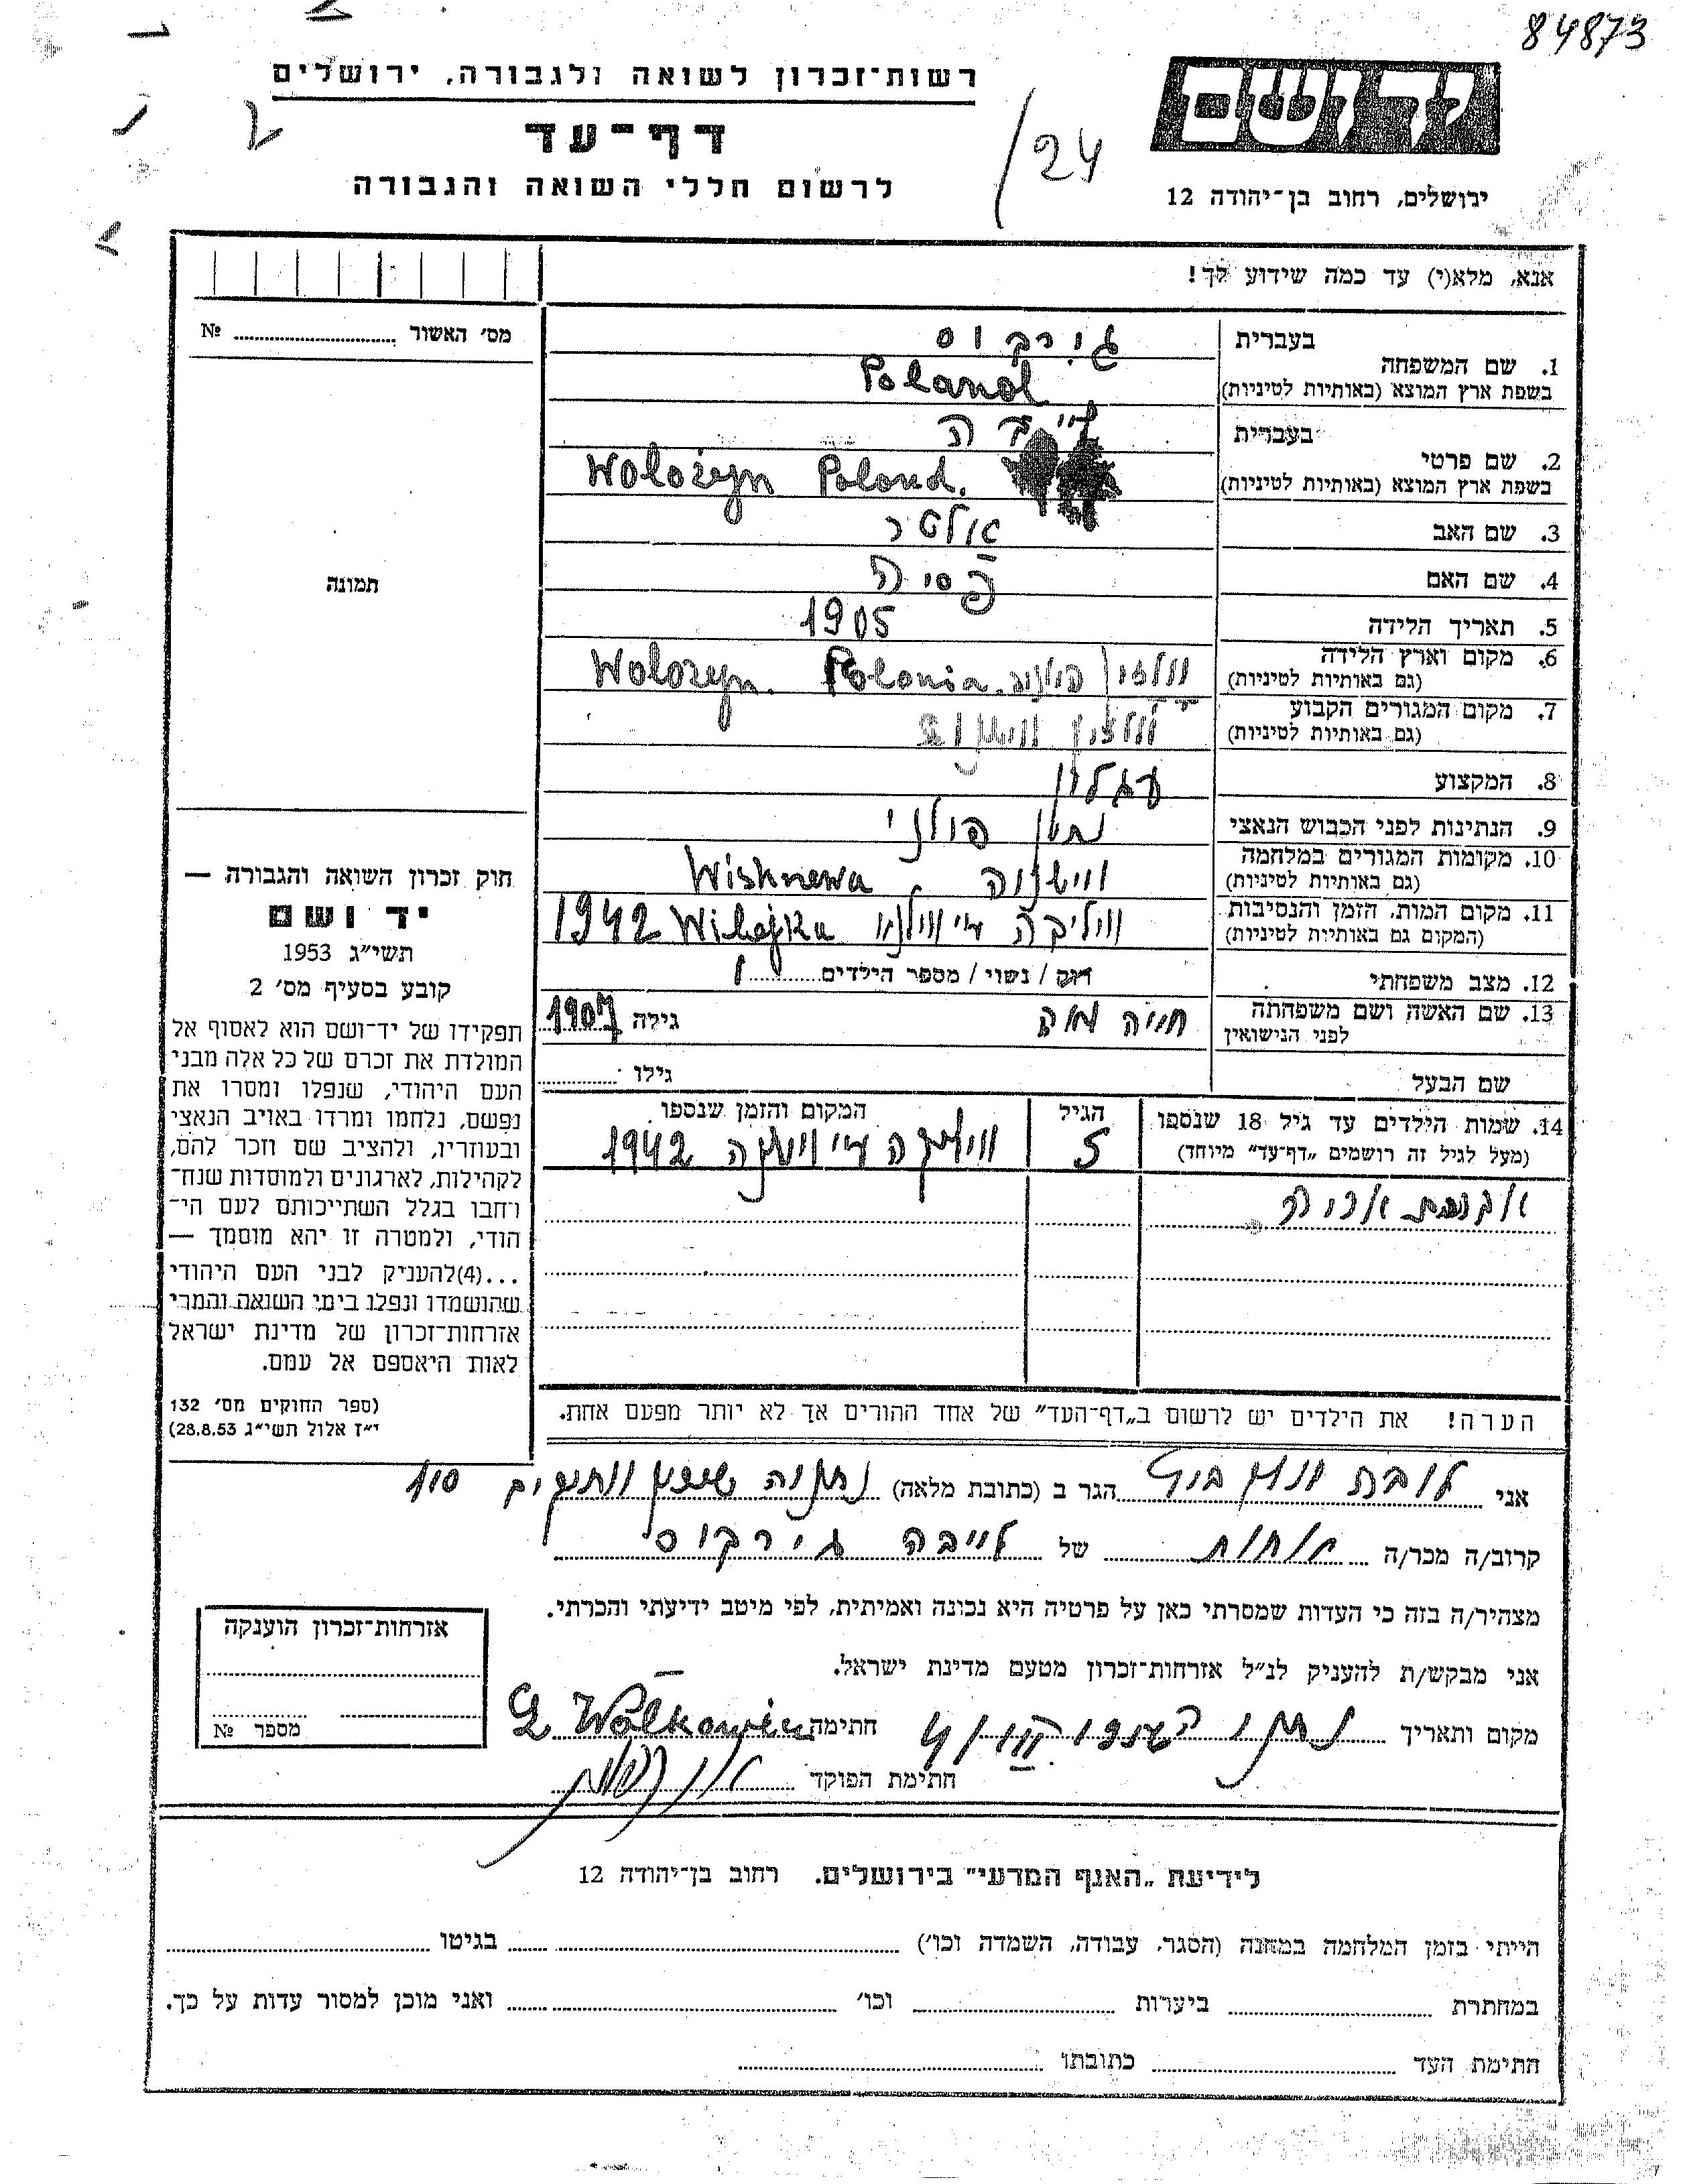 84873
ידושם
ירושלים, רחוב בן־יהודה 12
רשות־זכרון לשואה ולגבורה, ירושלים
דף־עד
לרשום חללי השואה והגבורה
24
אנא, מלא(י) עד כמה שידוע לך!
מס׳ האשור № 
1. שם המשפחה
בעברית גירקוס
בשפת ארץ המוצא (באותיות לטיניות) Poland
2. שם פרטי
בעברית לייבה
בשפת ארץ המוצא (באותיות לטיניות) Wolożyn Poland.
3. שם האב אלטר
4. שם האם פסיה
5. תאריך הלידה 1905
6. מקום וארץ הלידה
(גם באותיות לטיניות) וולוזין פולניה. Wolozyn. Polonia.
7. מקום המגורים הקבוע
(גם באותיות לטיניות)
8. המקצוע עגלון
9. הנתינות לפני הכבוש הנאצי נתין פולני
10. מקומות המגורים במלחמה
(גם באותיות לטיניות) ווישנוה Wishnewa
11. מקום המות, הזמן והנסיבות
(המקום גם באותיות לטיניות) Wilejka 1942
12. מצב משפחתי רווק / נשוי / מספר הילדים 1
13. שם האשה ושם משפחתה
לפני הנישואין חייה גילה 1907
שם הבעל גילו
14. שמות הילדים עד גיל 18 שנספו
(מעל לגיל זה רושמים „דף־עד״ מיוחד)
הגיל
5
המקום והזמן שנספו
1942
תמונה
חוק זכרון השואה והגבורה —
יד ושם
תשי״ג 1953
קובע בסעיף מס׳ 2
תפקידו של יד־ושם הוא לאסוף אל
המולדת את זכרם של כל אלה מבני
העם היהודי, שנפלו ומסרו את
נפשם, נלחמו ומרדו באויב הנאצי
ובעוזריו, ולהציב שם וזכר להם,
לקהילות, לארגונים ולמוסדות שנח־
רחבו בגלל השתייכותם לעם הי־
הודי, ולמטרה זו יהא מוסמך —
...(4)להעניק לבני העם היהודי
שהושמדו ונפלו בימי השואה והמרי
אזרחות־זכרון של מדינת ישראל
לאות היאספם אל עמם.
(ספר החוקים מס׳ 132
י״ז אלול תשי״ג 28.8.53)
הערה! את הילדים יש לרשום ב„דף־העד״ של אחד ההורים אך לא יותר מפעם אחת.
אני הגר ב (כתובת מלאה) נתניה שיכון וותיקים 110
קרוב/ה מכר/ה אחות של לייבה גירקוס
מצהיר/ה בזה כי העדות שמסרתי כאן על פרטיה היא נכונה ואמיתית, לפי מיטב ידיעתי והכרתי.
אני מבקש/ת להעניק לנ״ל אזרחות־זכרון מטעם מדינת ישראל.
מקום ותאריך חתימה
חתימת הפוקד
אזרחות־זכרון הוענקה
מספר №
לידיעת „האגף המדעי״ בירושלים. רחוב בן־יהודה 12
הייתי בזמן המלחמה במחנה (הסגר, עבודה, השמדה וכו׳) בגיטו
במחתרת ביערות וכו׳ ואני מוכן למסור עדות על כך.
חתימת העד כתובתו